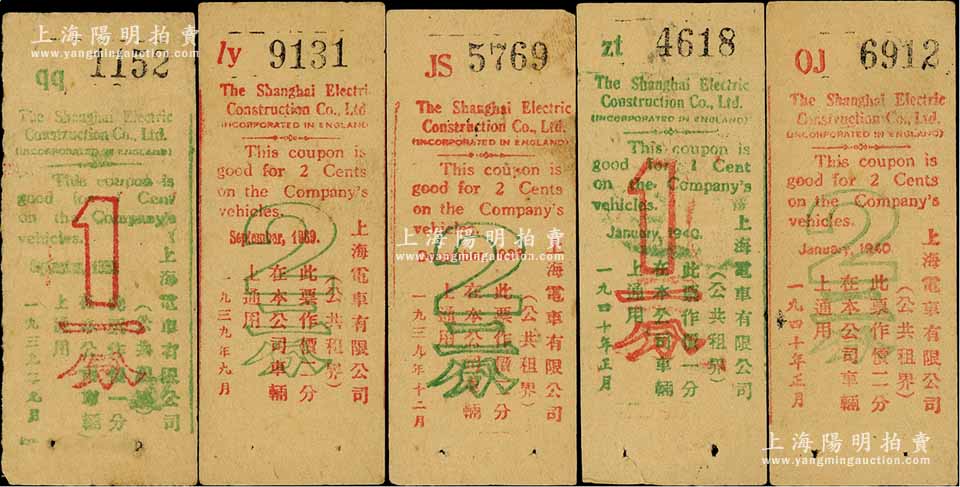 qq 1152
The Shanghai Electric
Construction Co., Ltd.
(INCORPORATED IN ENGLAND)
This coupon is
good for 1 Cent
on the Company's
vehicles.
1
一分
上海電車有限公司
(公共租界)
此票作價一分
在本公司車輛
上通用
一九三九年九月
ly 9131
The Shanghai Electric
Construction Co., Ltd
(INCORPORATED IN ENGLAND)
This coupon is
good for 2 Cents
on the Company's
vehicles.
September, 1939.
2
二分
上海電車有限公司
(公共租界)
此票作價二分
在本公司車輛
上通用
一九三九年九月
JS 5769
The Shanghai Electric
Construction Co., Ltd.
(INCORPORATED IN ENGLAND)
This coupon is
good for 2 Cents
on the Company's
vehicles.
2
二分
上海電車有限公司
(公共租界)
此票作價二分
在本公司車輛
上通用
一九三九年十二月
zt 4618
The Shanghai Electric
Construction Co., Ltd.
(INCORPORATED IN ENGLAND)
This coupon is
good for 1 Cent
on the Company's
vehicles.
January, 1940.
1
一分
上海電車有限公司
(公共租界)
此票作價一分
在本公司車輛
上通用
一九四十年正月
OJ 6912
The Shanghai Electric
Construction Co., Ltd.
(INCORPORATED IN ENGLAND)
This coupon is
good for 2 Cents
on the Company's
vehicles.
January, 1940.
2
二分
上海電車有限公司
(公共租界)
此票作價二分
在本公司車輛
上通用
一九四十年正月
上海陽明拍賣
www.yangmingauction.com
上海陽明拍賣
www.yangmingauction.com
上海陽明拍賣
www.yangmingauction.com